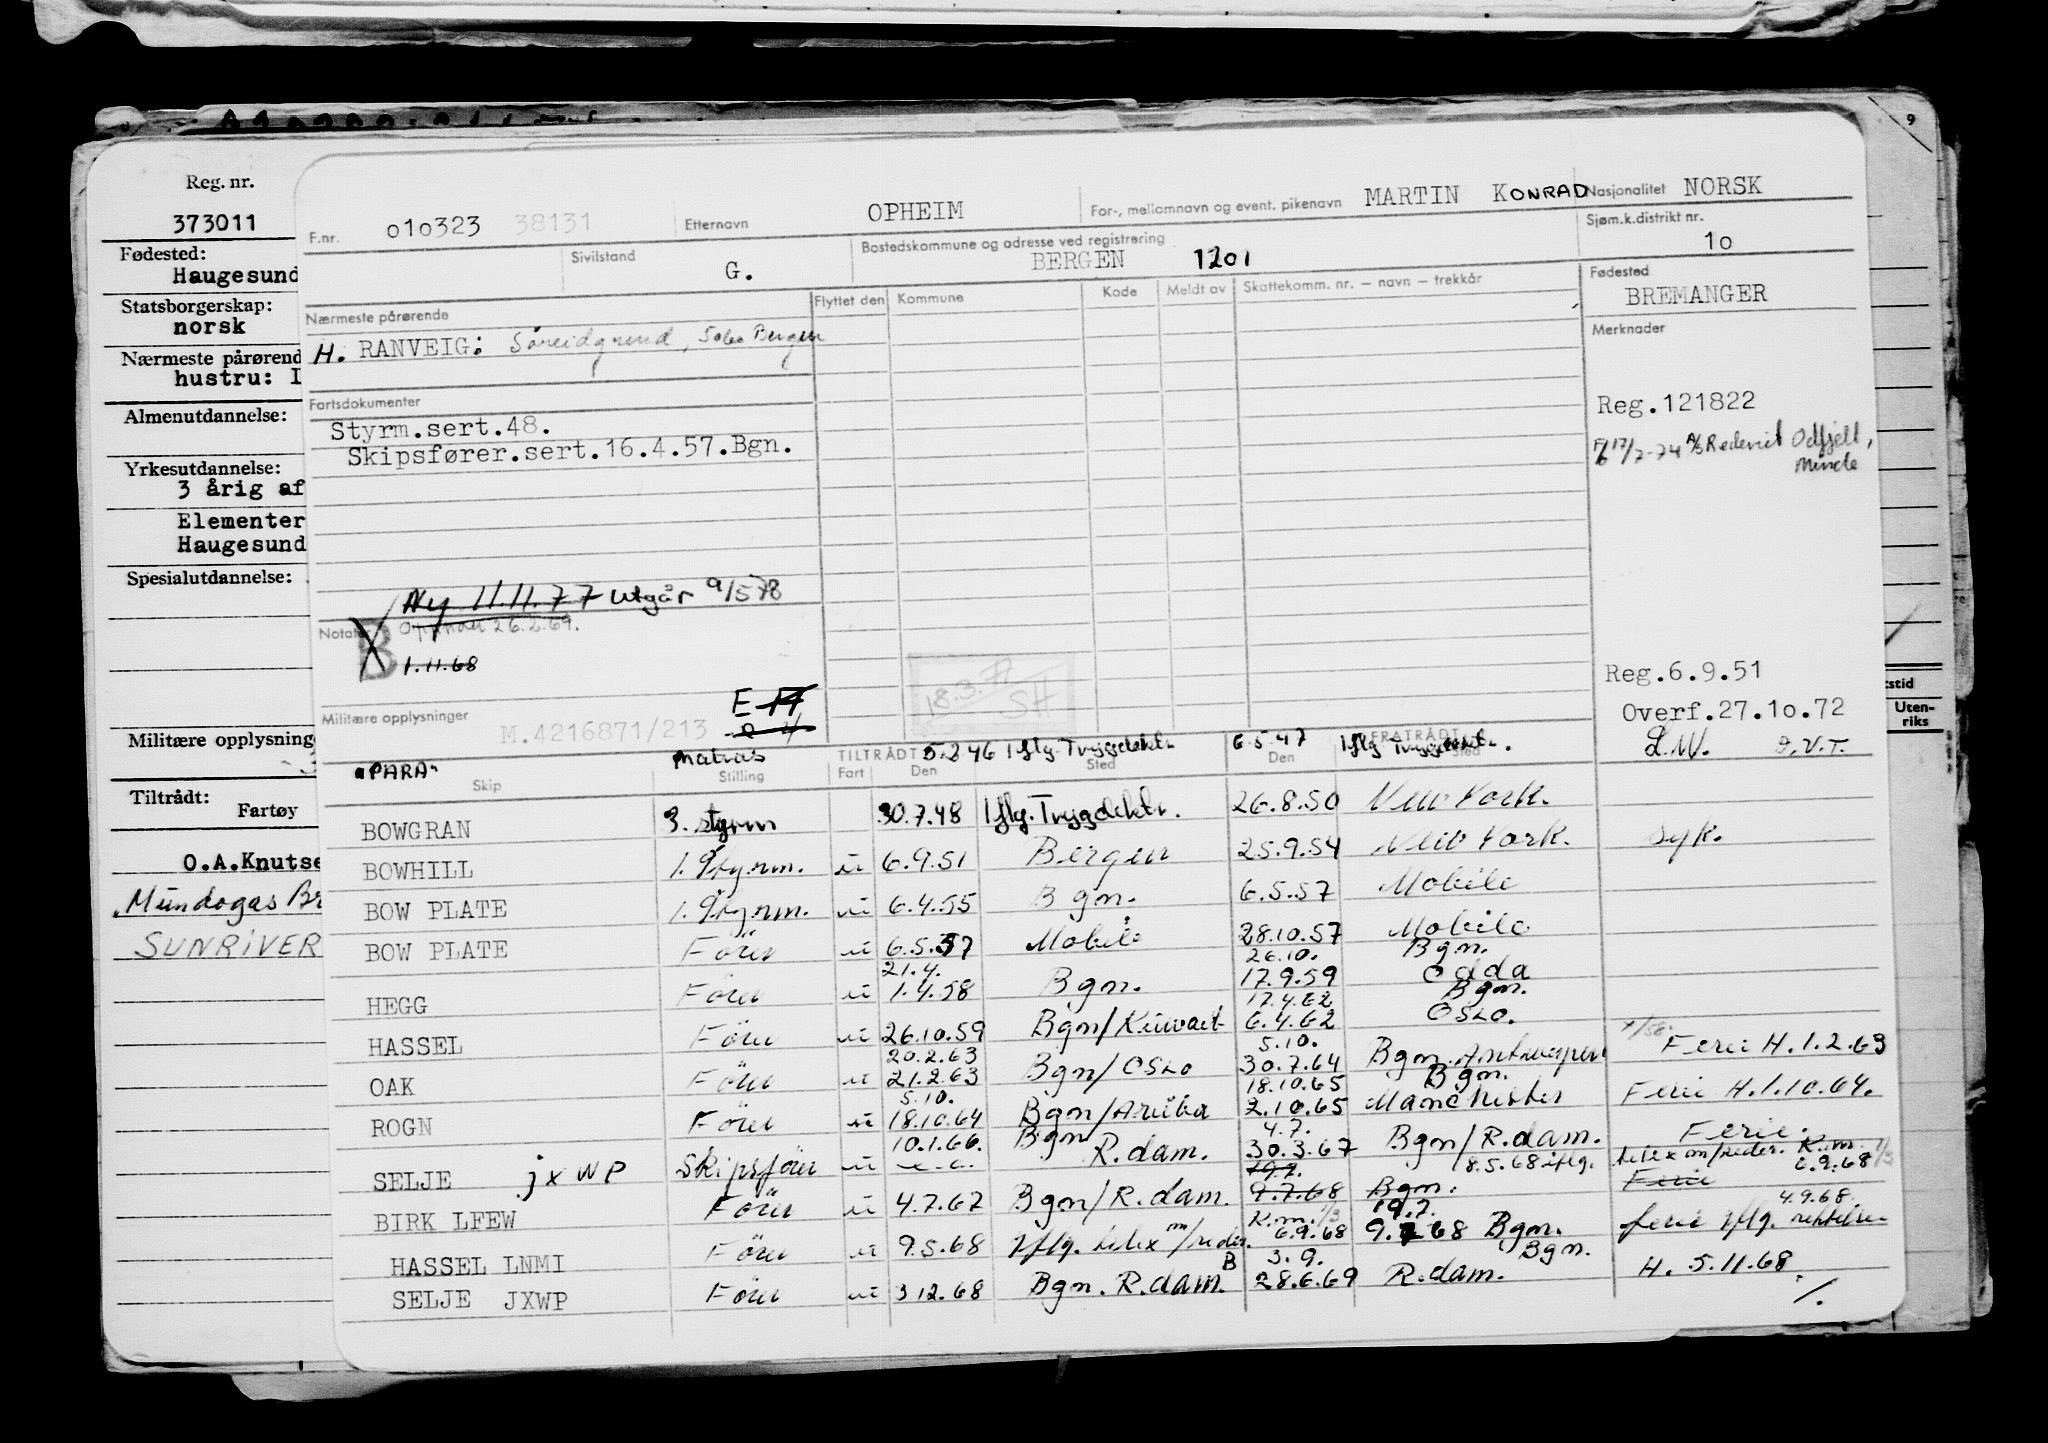 9
Reg. nr.
373011
Fødested:
Haugesund
Statsborgerskap:
norsk
Nærmeste pårørend
hustru: I
Almenutdannelse:
Yrkesutdannelse:
3 årig af
Elementer
Haugesund
Spesialutdannelse:
Militære opplysning
Tiltrådt:
Fartøy
O.A.Knutse
Mundogas Br
SUNRIVER
F.nr. 010323 38131 Etternavn OPHEIM For-, mellomnavn og event. pikenavn MARTIN KONRAD Nasjonalitet NORSK
Sivilstand G. Bostedskommune og adresse ved registrering BERGEN 1201 Sjøm.k.distrikt nr. 10
Nærmeste pårørende Flyttet den Kommune Kode Meldt av Skattekomm. nr. – navn – trekkår Fødested BREMANGER
H. RANVEIG: Søreidgrend, Bergen
Merknader
Fartsdokumenter
Styrm.sert.48.
Skipsfører.sert.16.4.57.Bgn.
Reg.121822
17/7-74 A/S Rederiet Odfjell,
Minde
Ny 11.11.77 Utgår 9/5 78
Notate B 26.2.69.
1.11.68
18.3.71
SH
Reg.6.9.51
Overf.27.10.72
Militære opplysninger M.4216871/213 E
L.W. D.V.T.
"PARA" Matros TILTRÅDT 5.2 46 Iflg. Trygdektr. 6.5.47 FRATRÅDT Iflg Trygdektr.
Skip Stilling Fart Den Sted Den Sted
BOWGRAN 3. styrm 30.7.48 Iflg. Trygdektr. 26.8.50 New York.
BOWHILL 1. Styrm. u 6.9.51 Bergen 25.9.54 New York. syk.
BOW PLATE 1. Styrm. u 6.4.55 Bgn. 6.5.57 Mobile
BOW PLATE Förer u 6.5.57 Mobile 28.10.57 Mobile
21.4. 26.10. Bgn.
HEGG Förer u 1.4.58 Bgn. 17.9.59 Odda
17.4.62 Bgn.
HASSEL Förer u 26.10.59 Bgn/Kuwait 6.4.62 Oslo.
20.2.63 5.10.
OAK Förer u 21.2.63 Bgn/Oslo 30.7.64 Bgn. Antwerpen Ferie H.1.2.63
5.10. 18.10.65 Bgn.
ROGN Förer u 18.10.64 Bgn/Aruba 2.10.65 Manchester Ferie H.1.10.64.
10.1.66. Bgn 4.7.
SELJE jxWP Skipsförer u R.dam. 30.3.67 Bgn/R.dam. Ferie.
19.7. 8.5.68 iflg. telex m/reder. K.m. 1/3
6.9.68
BIRK LFEW Förer u 4.7.67 Bgn/R.dam. 9.7.68 Bgn. Ferie
K.m. 1/3 19.7. 4.9.68.
HASSEL LNMI Förer u 9.5.68 Iflg. telex m/reder. 6.9.68 9.7 68 Bgn. ferie Iflg.
B 3.9. Bgn.
SELJE JXWP Förer u 3 12.68 Bgn. R.dam. 28.6.69 R.dam. H. 5.11.68.
/.
stid
Uten-
riks